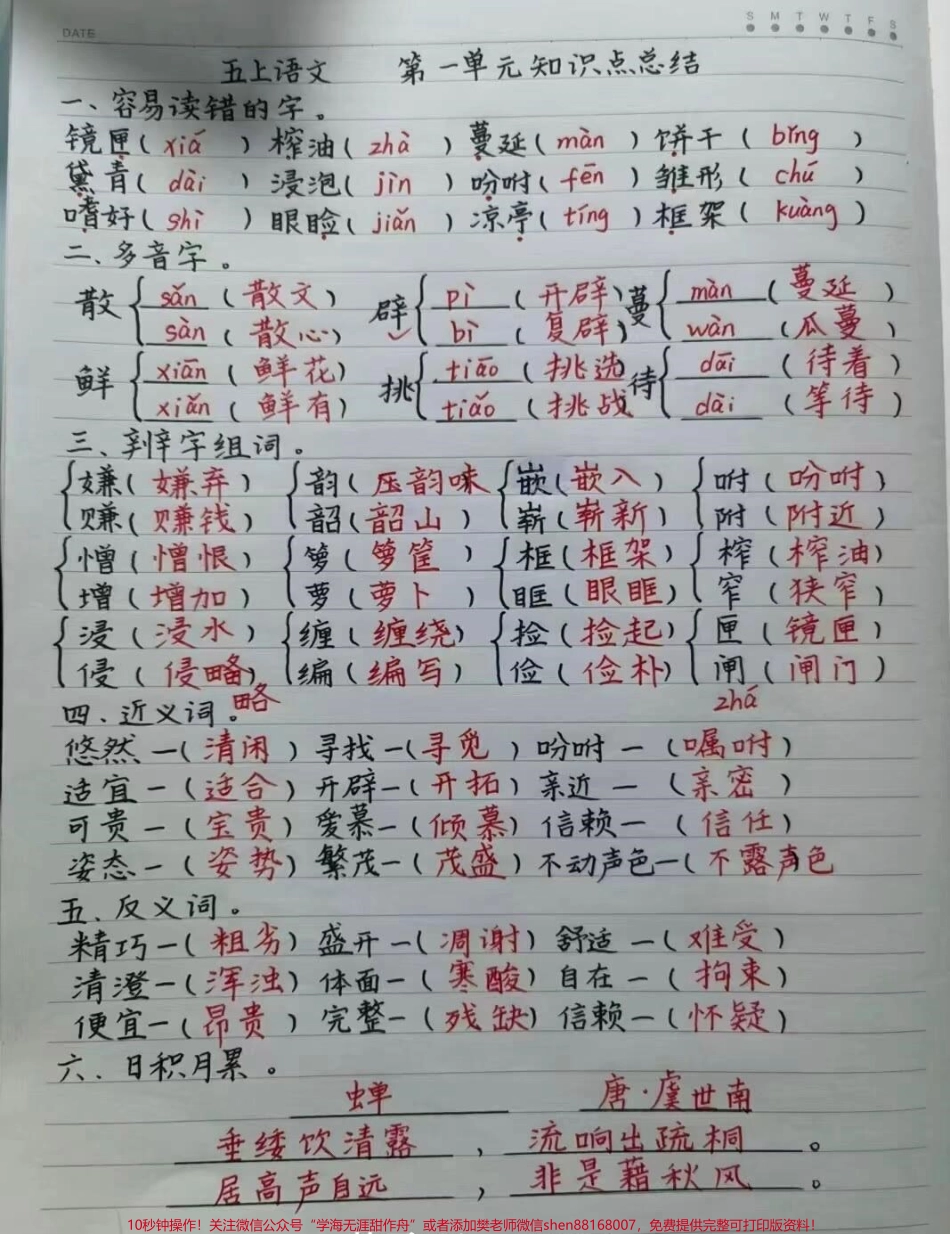 DATE
S M T W T F S
五上语文 第一单元知识点总结
一、容易读错的字。
镜匣(xiá) 榨油(zhà) 蔓延(màn) 饼干(bǐng)
黛青(dài) 浸泡(jìn) 吩咐(fēn) 雏形(chú)
嗜好(shì) 眼睑(jiǎn) 凉亭(tíng) 框架(kuàng)
二、多音字。
散 sǎn(散文) 辟 pì(开辟) 蔓 màn(蔓延)
sàn(散心) bì(复辟) wàn(瓜蔓)
鲜 xiān(鲜花) 挑 tiāo(挑选) 待 dāi(待着)
xiǎn(鲜有) tiǎo(挑战 dài(等待)
三、辨字组词。
嫌(嫌弃) 韵(压韵味 嵌(嵌入) 咐(吩咐)
赚(赚钱) 韶(韶山) 崭(崭新) 附(附近)
憎(憎恨) 箩(箩筐) 框(框架) 榨(榨油)
增(增加) 萝(萝卜) 眶(眼眶) 窄(狭窄)
浸(浸水) 缠(缠绕) 捡(捡起) 匣(镜匣)
侵(侵略) 编(编写) 俭(俭朴) 闸(闸门)
四、近义词。略 zhá
悠然—(清闲) 寻找—(寻觅) 吩咐—(嘱咐)
适宜—(适合) 开辟—(开拓) 亲近—(亲密)
可贵—(宝贵) 爱慕—(倾慕) 信赖—(信任)
姿态—(姿势) 繁茂—(茂盛) 不动声色—(不露声色
五、反义词。
精巧—(粗劣) 盛开—(凋谢) 舒适—(难受)
清澄—(浑浊) 体面—(寒酸) 自在—(拘束)
便宜—(昂贵) 完整—(残缺) 信赖—(怀疑)
六、日积月累。
蝉 唐·虞世南
垂緌饮清露,流响出疏桐。
居高声自远,非是藉秋风。
10秒钟操作!关注微信公众号“学海无涯甜作舟”或者添加樊老师微信shen88168007,免费提供完整可打印版资料!